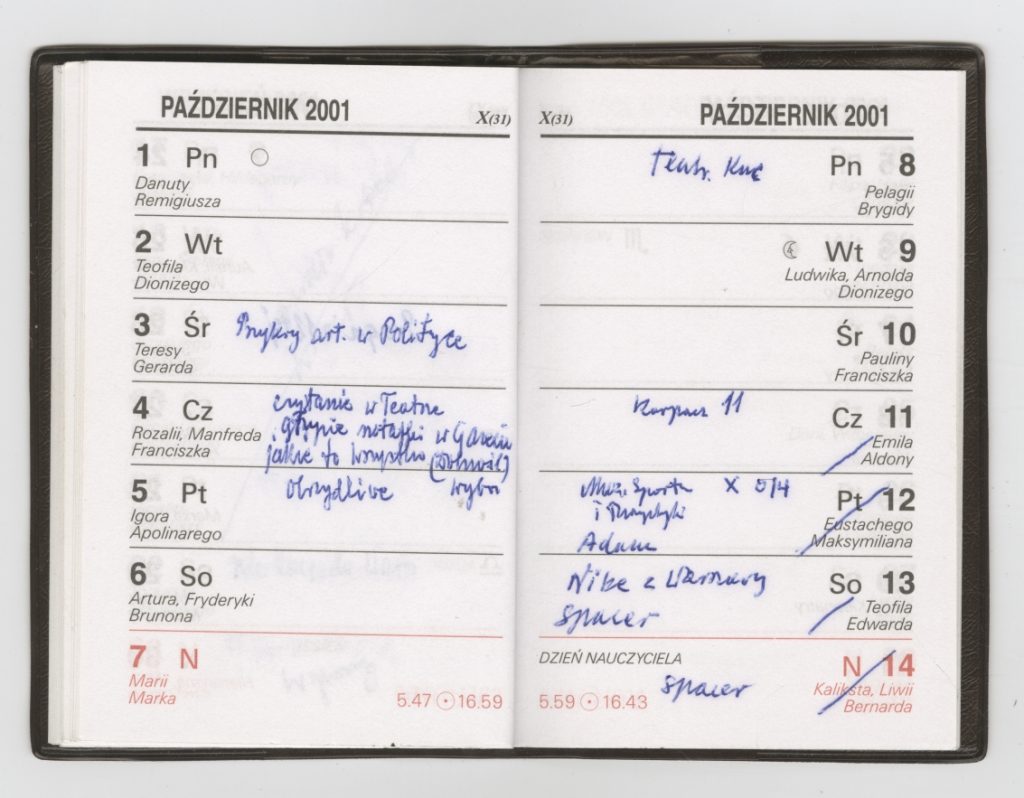 PAŹDZIERNIK 2001
X(31)
1 Pn
Danuty
Remigiusza
2 Wt
Teofila
Dionizego
3 Śr
Przykry art. w Polityce
Teresy
Gerarda
4 Cz
czytanie w Teatrze
głupie notatki w Gazecie
Rozalii, Manfreda
Franciszka
jakie to wszystko
5 Pt
obrzydliwe
Igora
Apolinarego
6 So
Artura, Fryderyki
Brunona
7 N
Marii
Marka
5.47 16.59
X(31)
PAŹDZIERNIK 2001
Teatr.
Pn 8
Pelagii
Brygidy
Wt 9
Ludwika, Arnolda
Dionizego
Śr 10
Pauliny
Franciszka
Karpacz 11
Cz 11
Emila
Aldony
Muz. Sportu X 514
i Turystyki
Pt 12
Eustachego
Maksymiliana
Adam
Nike z Warszawy
So 13
Spacer
Teofila
Edwarda
DZIEŃ NAUCZYCIELA
N 14
Spacer
Kaliksta, Liwii
Bernarda
5.59 16.43